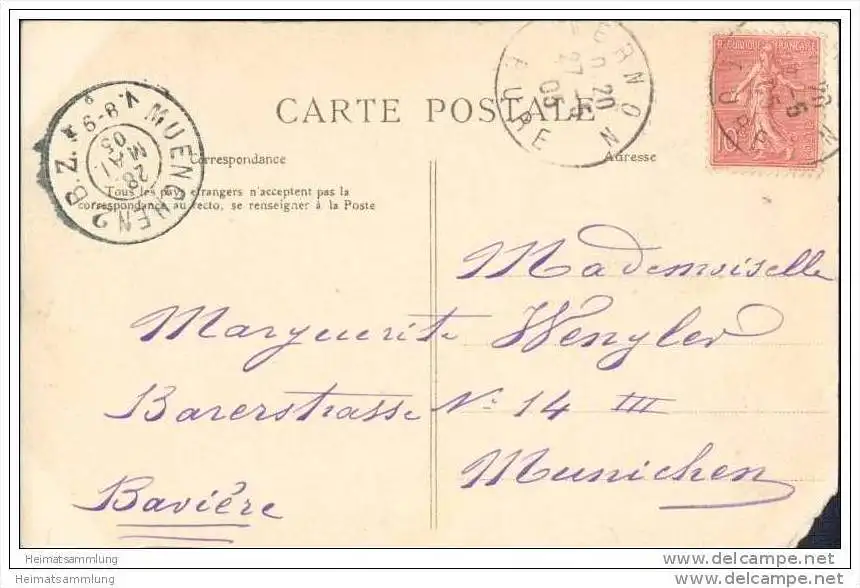 CARTE POSTALE
Correspondance
Adresse
Tous les pays étrangers n'acceptent pas la
correspondance au recto, se renseigner à la Poste
MUENCHEN 2 B.Z.
V. 8-9
28 MAI 05
20
27 -5
05
EURE
REPUBLIQUE FRANÇAISE
10
Mademoiselle
Marguerite Wengler
Barerstrasse No 14 III
Munichen
Bavière
Heimatsammlung
Heimatsammlung
www.delcampe.net